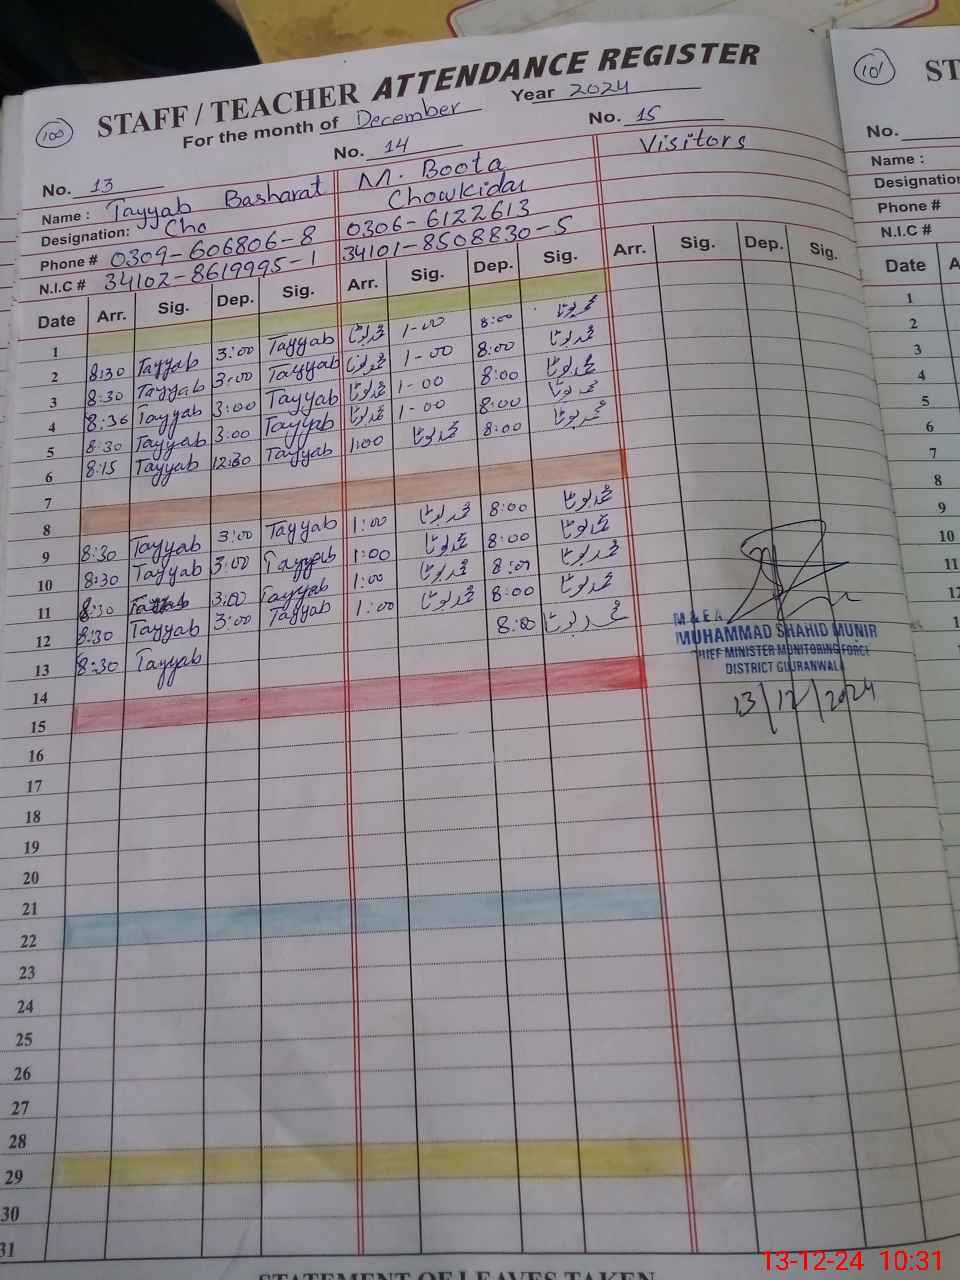 100
STAFF / TEACHER ATTENDANCE REGISTER
For the month of December Year 2024
No. 13 No. 14 No. 15
Name : Tayyab Basharat M. Boota Visitors
Designation: Cho Chowkidar
Phone # 0309-606806-8 0306-6122613
N.I.C # 34102-8619995-1 34101-8508830-5
Date Arr. Sig. Dep. Sig. Arr. Sig. Dep. Sig. Arr. Sig. Dep. Sig.
1
2 8:30 Tayyab 3:00 Tayyab محمد بوٹا 1-00 8:00 محمد بوٹا
3 8:30 Tayyab 3:00 Tayyab محمد بوٹا 1-00 8:00 محمد بوٹا
4 8:30 Tayyab 3:00 Tayyab محمد بوٹا 1-00 8:00 محمد بوٹا
5 8:30 Tayyab 3:00 Tayyab محمد بوٹا 1-00 8:00 محمد بوٹا
6 8:15 Tayyab 12:30 Tayyab 1:00 محمد بوٹا 8:00 محمد بوٹا
7
8
9 8:30 Tayyab 3:00 Tayyab 1:00 محمد بوٹا 8:00 محمد بوٹا
10 8:30 Tayyab 3:00 Tayyab 1:00 محمد بوٹا 8:00 محمد بوٹا
11 8:30 Tayyab 3:00 Tayyab 1:00 محمد بوٹا 8:00 محمد بوٹا
12 8:30 Tayyab 3:00 Tayyab 1:00 محمد بوٹا 8:00 محمد بوٹا
13 8:30 Tayyab 8:00 محمد بوٹا
14
15
16
17
18
19
20
21
22
23
24
25
26
27
28
29
30
31
M & E A
MUHAMMAD SHAHID MUNIR
CHIEF MINISTER MONITORING FORCE
DISTRICT GUJRANWALA
13/12/2024
STATEMENT OF LEAVES TAKEN
101
ST
No.
Name :
Designation
Phone #
N.I.C #
Date A
1
2
3
4
5
6
7
8
9
10
11
12
13-12-24 10:31